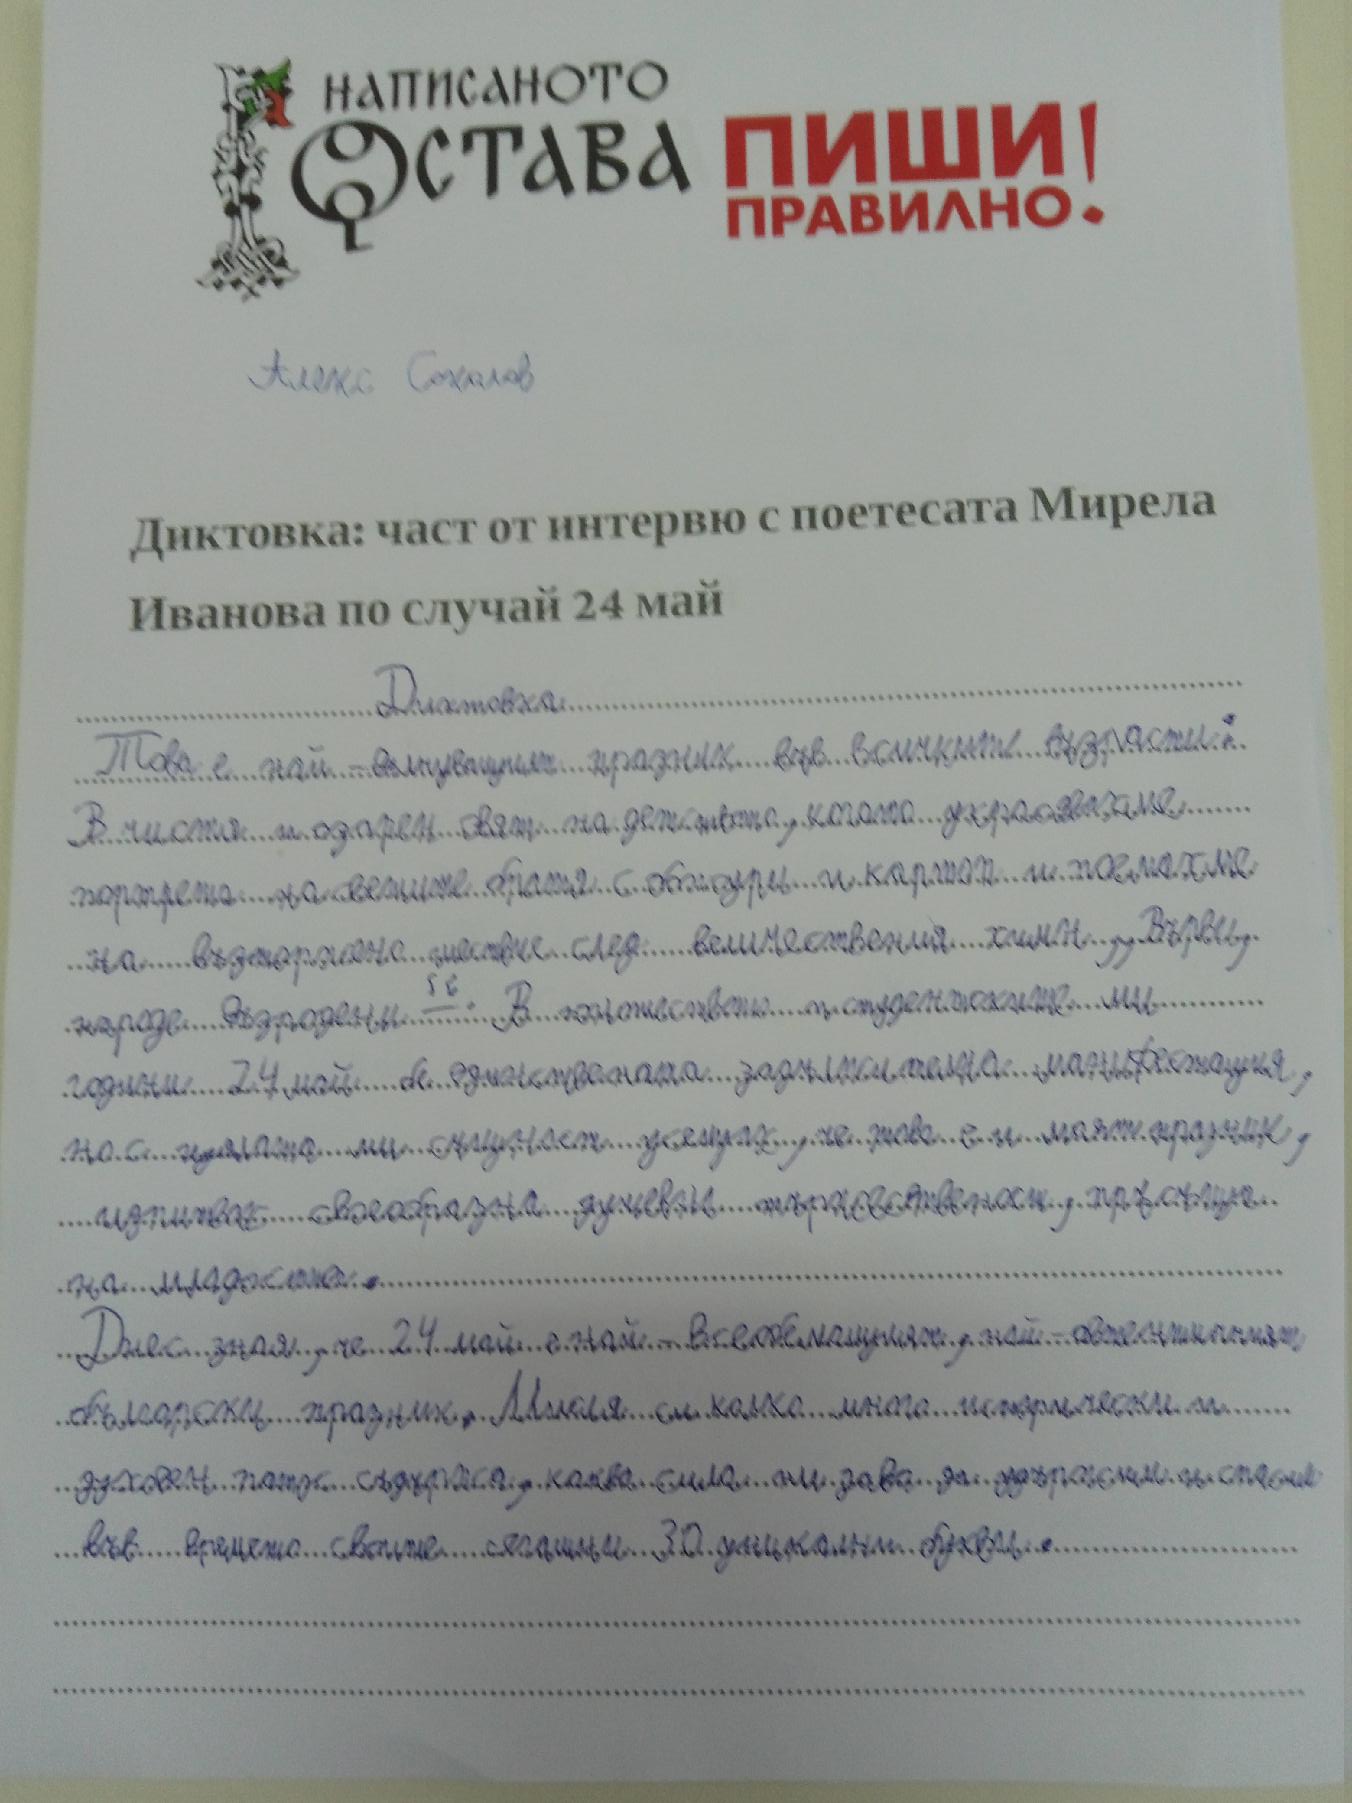 НАПИСАНОТО
ОСТАВА
ПИШИ
ПРАВИЛНО!
Алекс Сокалов
Диктовка: част от интервю с поетесата Мирела
Иванова по случай 24 май
Диктовка
Това е най-вълнуващият празник във всичките възрасти:
В чистия и озарен свят на детството, когато украсявахме
портрета на светите братя с божури и картон и поемахме
на въодушевено шествие след величествения химн „Върви,
народе възродени“. В юношеството и студентските ми
години 24 май бе единствената задължителна манифестация,
но с цялата ми същност усещах, че това е и моят празник,
изпитвах своеобразна душевна тържественост, присъща
на младостта.
Днес зная, че 24 май е най-всеобемащият, най-автентичният
български празник. Мисля си колко много исторически и
духовен натиск съдържа, каква сила ни дава да удържим и спасим
във времето своите сегашни 30 уникални букви.